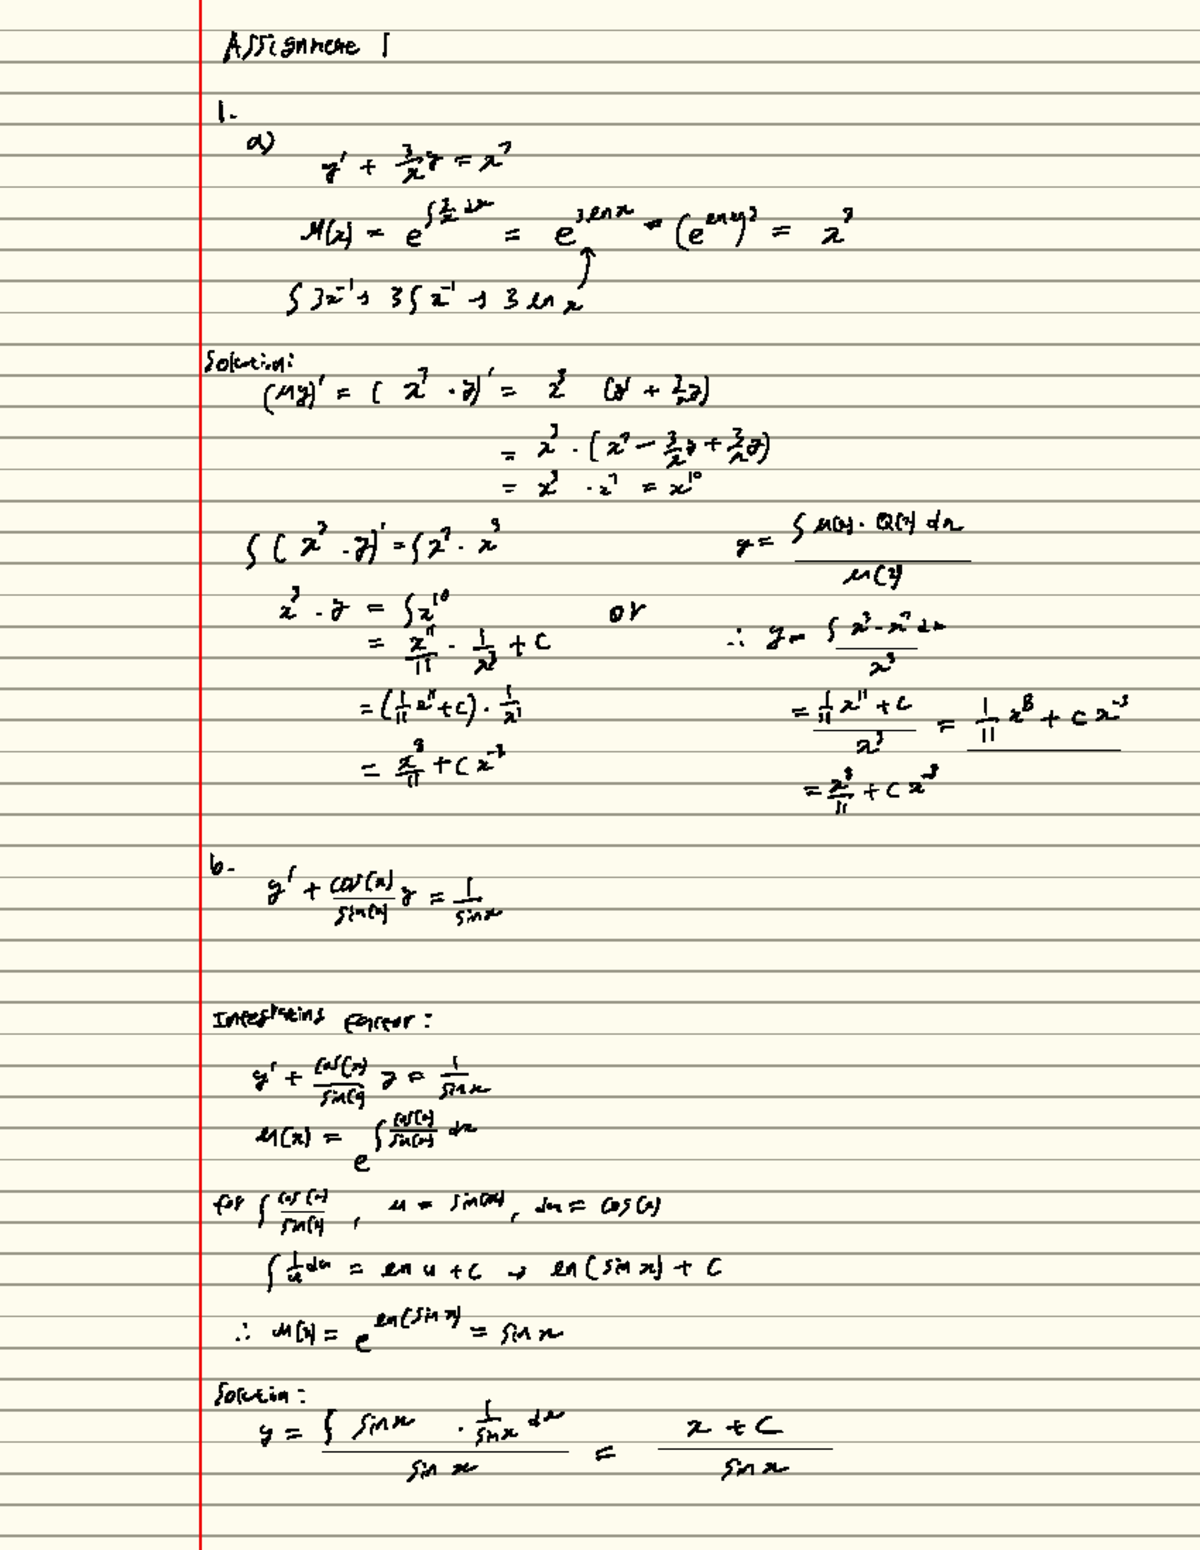 Assignment 1
1.
a)
y' + 3/x y = x^7
M(x) = e^{∫ 3/x dx} = e^{3 ln x} = (e^{ln x})^3 = x^3
∫ 3x^{-1} → 3∫ x^{-1} → 3 ln x
Solution:
(My)' = ( x^3 · y)' = x^3 (y' + 3/x y)
= x^3 · (x^7 − 3/x y + 3/x y)
= x^3 · x^7 = x^{10}
∫ ( x^3 · y)' = ∫ x^7 · x^3
x^3 · y = ∫ x^{10}
= x^{11}/11 · 1/x^3 + C
= (1/11 x^{11} + C) · 1/x^3
= x^8/11 + C x^{-3}
or
y = ∫ M(x) · Q(x) dx / M(x)
∴ y = ∫ x^3 · x^7 dx / x^3
= 1/11 x^{11} + C / x^3 = 1/11 x^8 + C x^{-3}
= x^8/11 + C x^{-3}
b.
y' + cos(x)/sin(x) y = 1/sin x
Integrating factor:
y' + cos(x)/sin(x) y = 1/sin x
M(x) = e^{∫ cos(x)/sin(x) dx}
for ∫ cos(x)/sin(x) , u = sin(x), du = cos(x)
∫ 1/u du = ln u + C → ln(sin x) + C
∴ M(x) = e^{ln(sin x)} = sin x
Solution:
y = ∫ sin x · 1/sin x dx / sin x = x + C / sin x